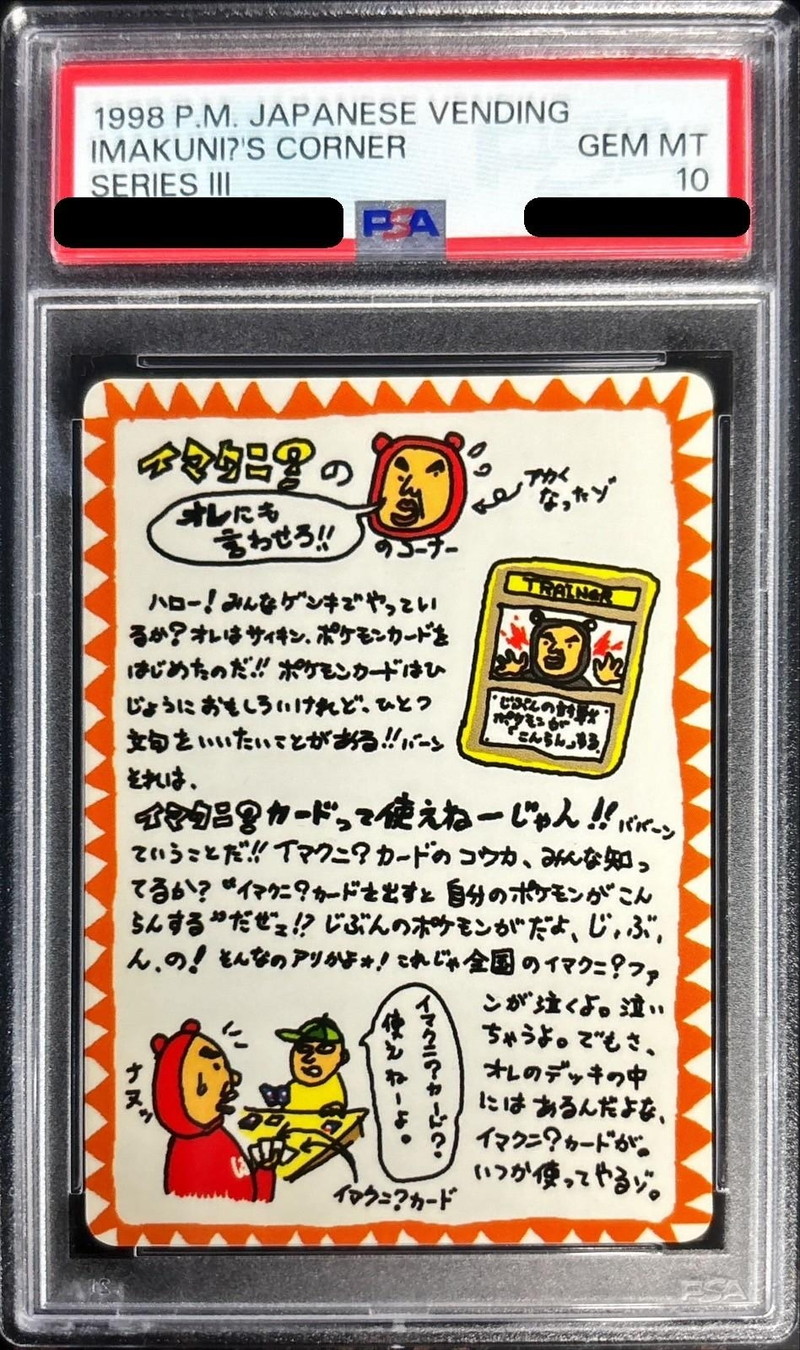 1998 P.M. JAPANESE VENDING
IMAKUNI?'S CORNER
GEM MT
SERIES III
10
PSA
イマクニ?の
オレにも
言わせろ!!
のコーナー
アカく
なったゾ
TRAINER
じぶんの対戦
ポケモンが
「こんらん」する
ハロー!みんなゲンキでやってい
るか?オレはサイキン、ポケモンカードを
はじめたのだ!!ポケモンカードはひ
じょうにおもしろいけれど、ひとつ
文句をいいたいことがある!!バーン
それは、
イマクニ?カードって使えねーじゃん!!ババーン
ていうことだ!!イマクニ?カードのコウカ、みんな知っ
てるか?“イマクニ?カードを出すと自分のポケモンがこん
らんする”だぜェ!?じぶんのポケモンがだよ、じ,ぶ,
ん,の!そんなのアリかよォ!これじゃ全国のイマクニ?ファ
ンが泣くよ。泣い
ちゃうよ。でもさ、
オレのデッキの中
にはあるんだよな、
イマクニ?カードが。
いつか使ってやるゾ。
ナヌッ
イマクニ?カード?
使えねーよ。
イマクニ?カード
PSA